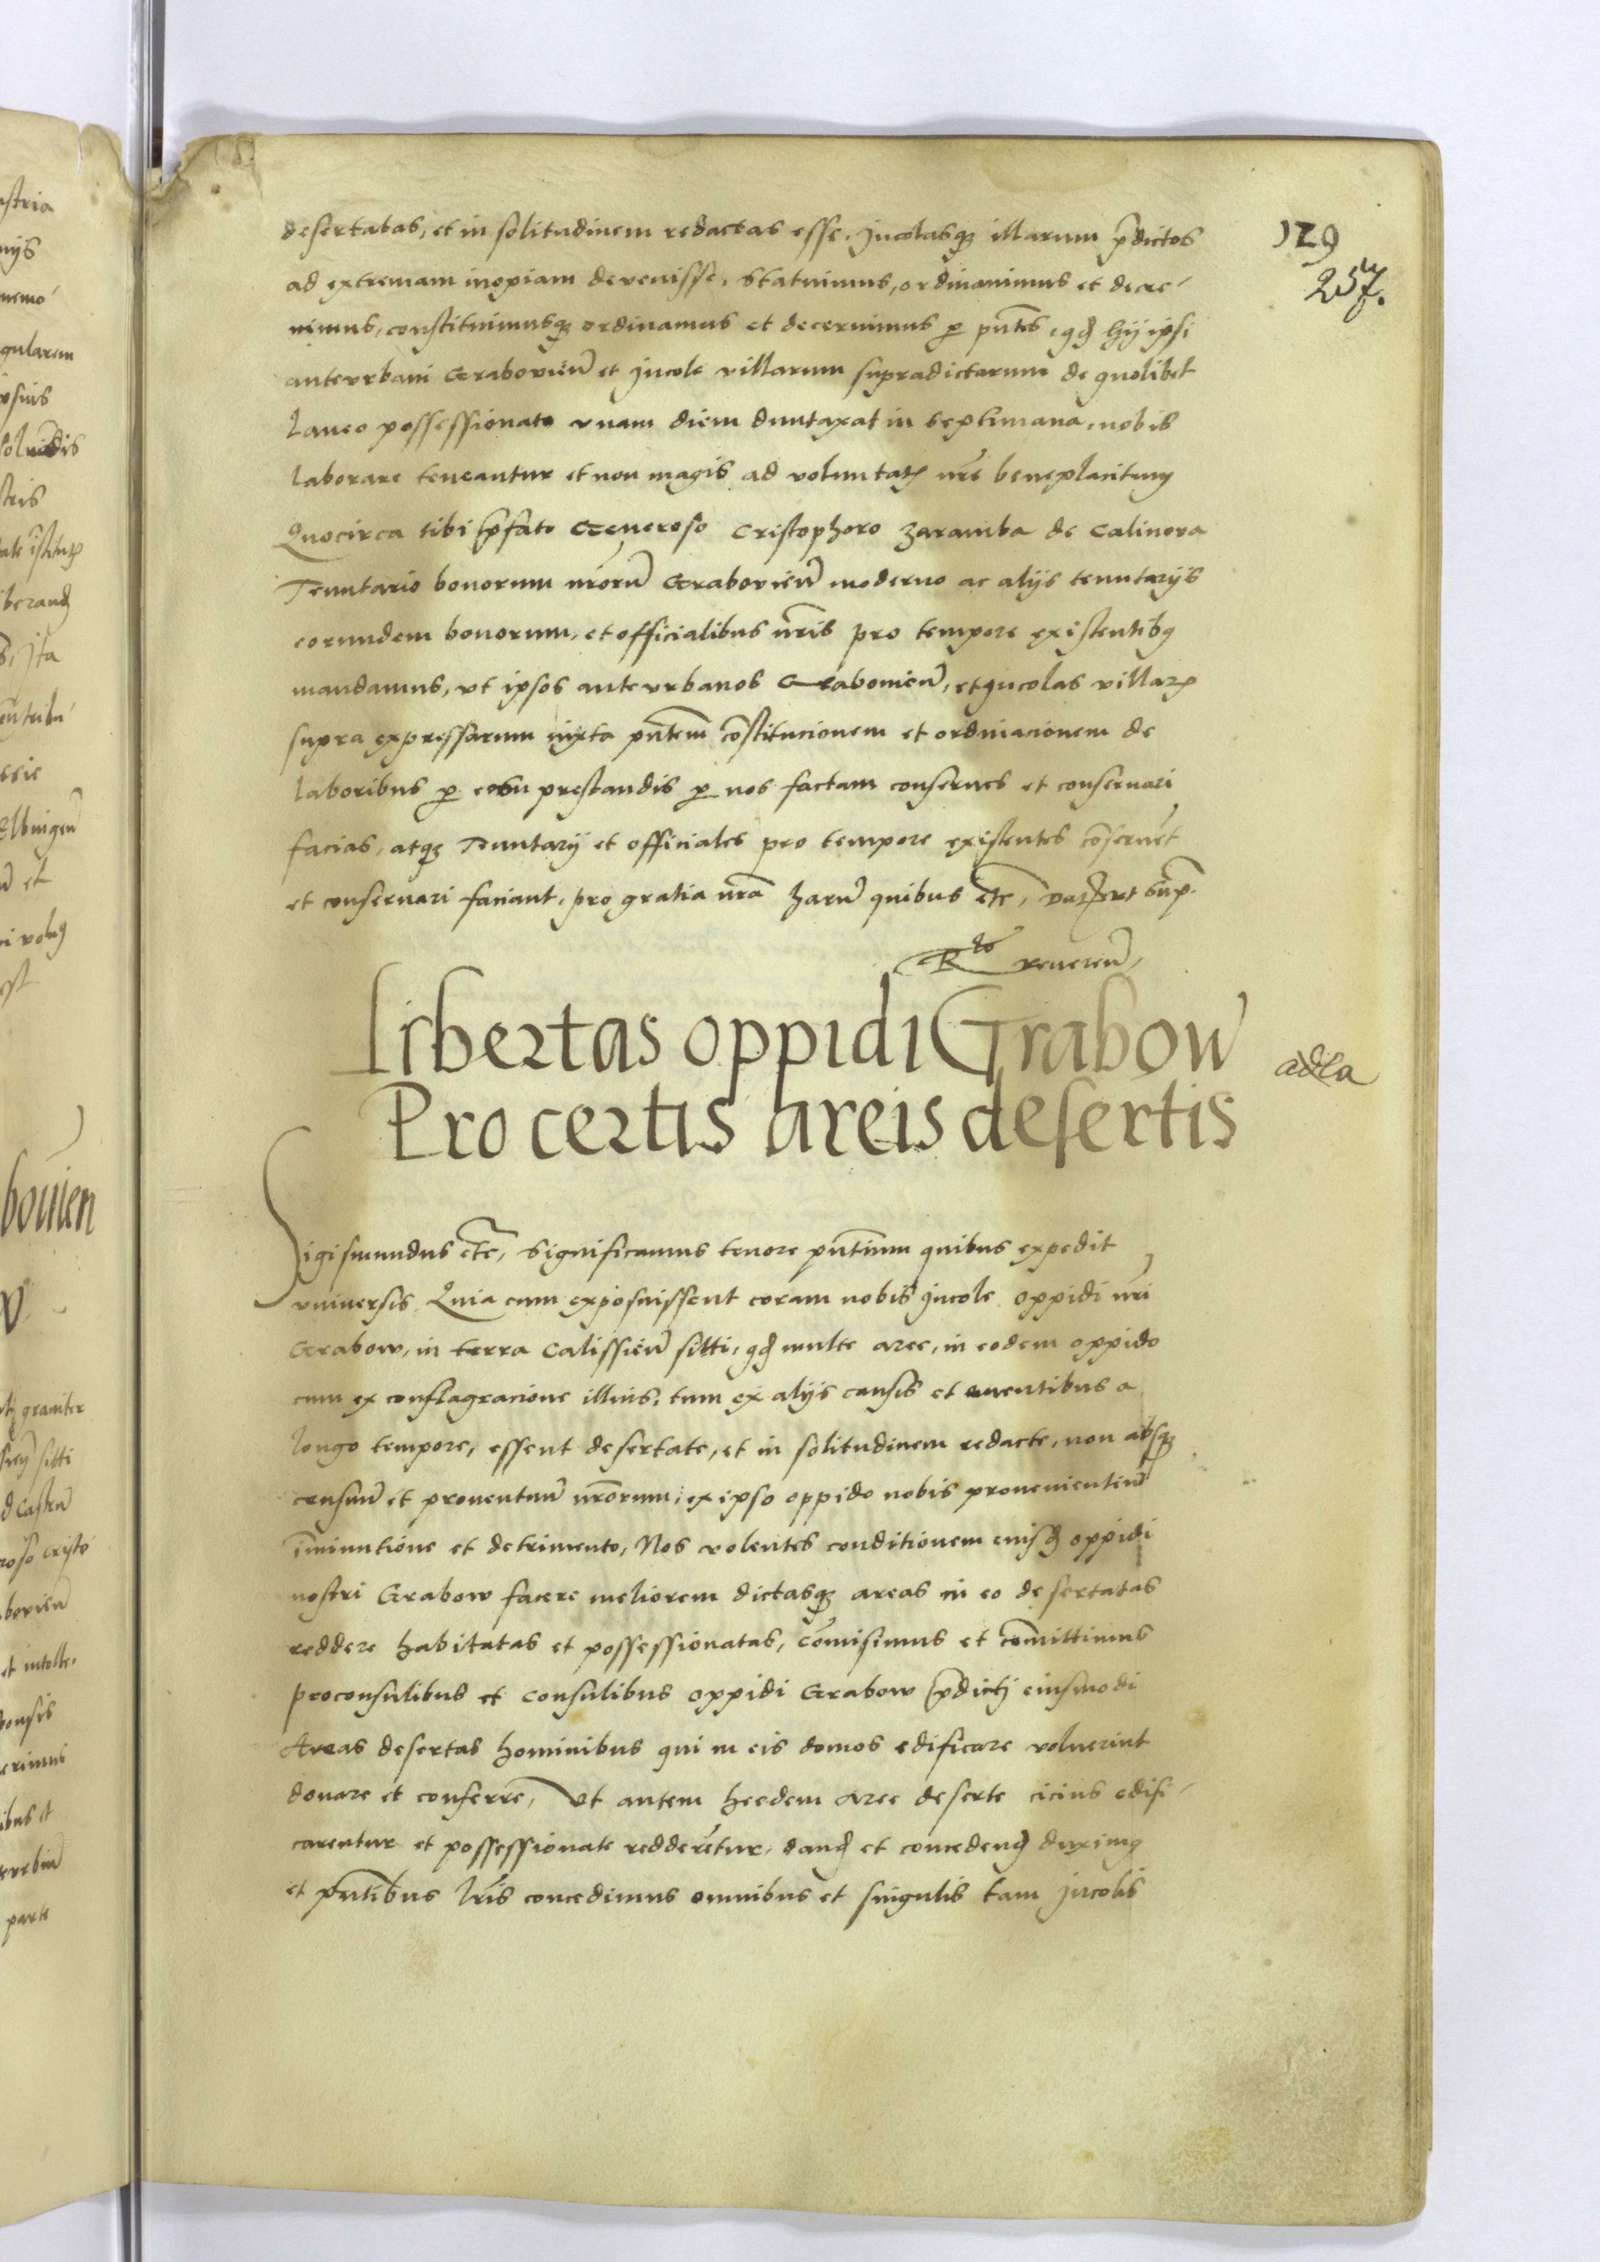 129
257.
desertatas, et in solitudinem redactas esse, Incolasqz illarum p̃dictos
ad extremam inopiam devenisse, Statuimus, ordinavimus et decre-
nimus, constituimusqz ordinamus et decernimus p pñtes, qđ hÿ ipsi
anteurbani Grabovieñ et Incole villarum supradictarum de quolibet
Laneo possessionato unam diem duntaxat in septimana, nobis
laborare teneantur et non magis ad voluntatꝫ nr̃e beneplacitum
Quocirca tibi p̃fato Generoso Cristophoro Zaramba de Calinova
Tenutario bonorum nr̃orũ Grabovieñ moderno ac alijs tenutarijs
eorundem bonorum, et officialibus nr̃is pro tempore existentibꝰ
mandamus, ut ipsos anteurbanos Grabovieñ, et Incolas villarꝫ
supra expressarum iuxta pñtem cõstitucionem et ordinacionem de
laboribus p eosdem prestandis p nos factam conserves et conservari
facias, atqz Tenutarij et officiales pro tempore existentes cõservẽt
et conservari faciant, pro gratia nr̃a harũ quibus etc, Datꝫ ut sup̃.
R^to reveren̄,
Libertas oppidi Grabow
Pro certis areis desertis
Sigismundus etc, Significamus tenore pñtium quibus expedit
universis. Quia cum exposuissent coram nobis Incole oppidi nr̃i
Grabow, in terra Calissieñ sitti, qđ multe aree, in eodem oppido
cum ex conflagracione illius, tum ex alijs causis et eventibus a
longo tempore, essent desertate, et in solitudinem redacte, non absqz
censuũ et proventuũ nr̃orum, ex ipso oppido nobis provenientiũ
ĩminutione et detrimento, Nos volentes conditionem eiusđ oppidi
nostri Grabow facere meliorem dictasqz areas in eo desertatas
reddere habitatas et possessionatas, cõmisimus et com̃ittimus
proconsulibus et Consulibus oppidi Grabow p̃dicti eiusmodi
Areas desertas hominibus qui in eis domos edificare voluerint
donare et conferre, Ut autem heedem aree deserte cicius edifi-
carentur et possessionate redderẽtur, danđ et concedenđ duximꝰ
et pñtibus lr̃is concedimus omnibus et singulis tam Incolis